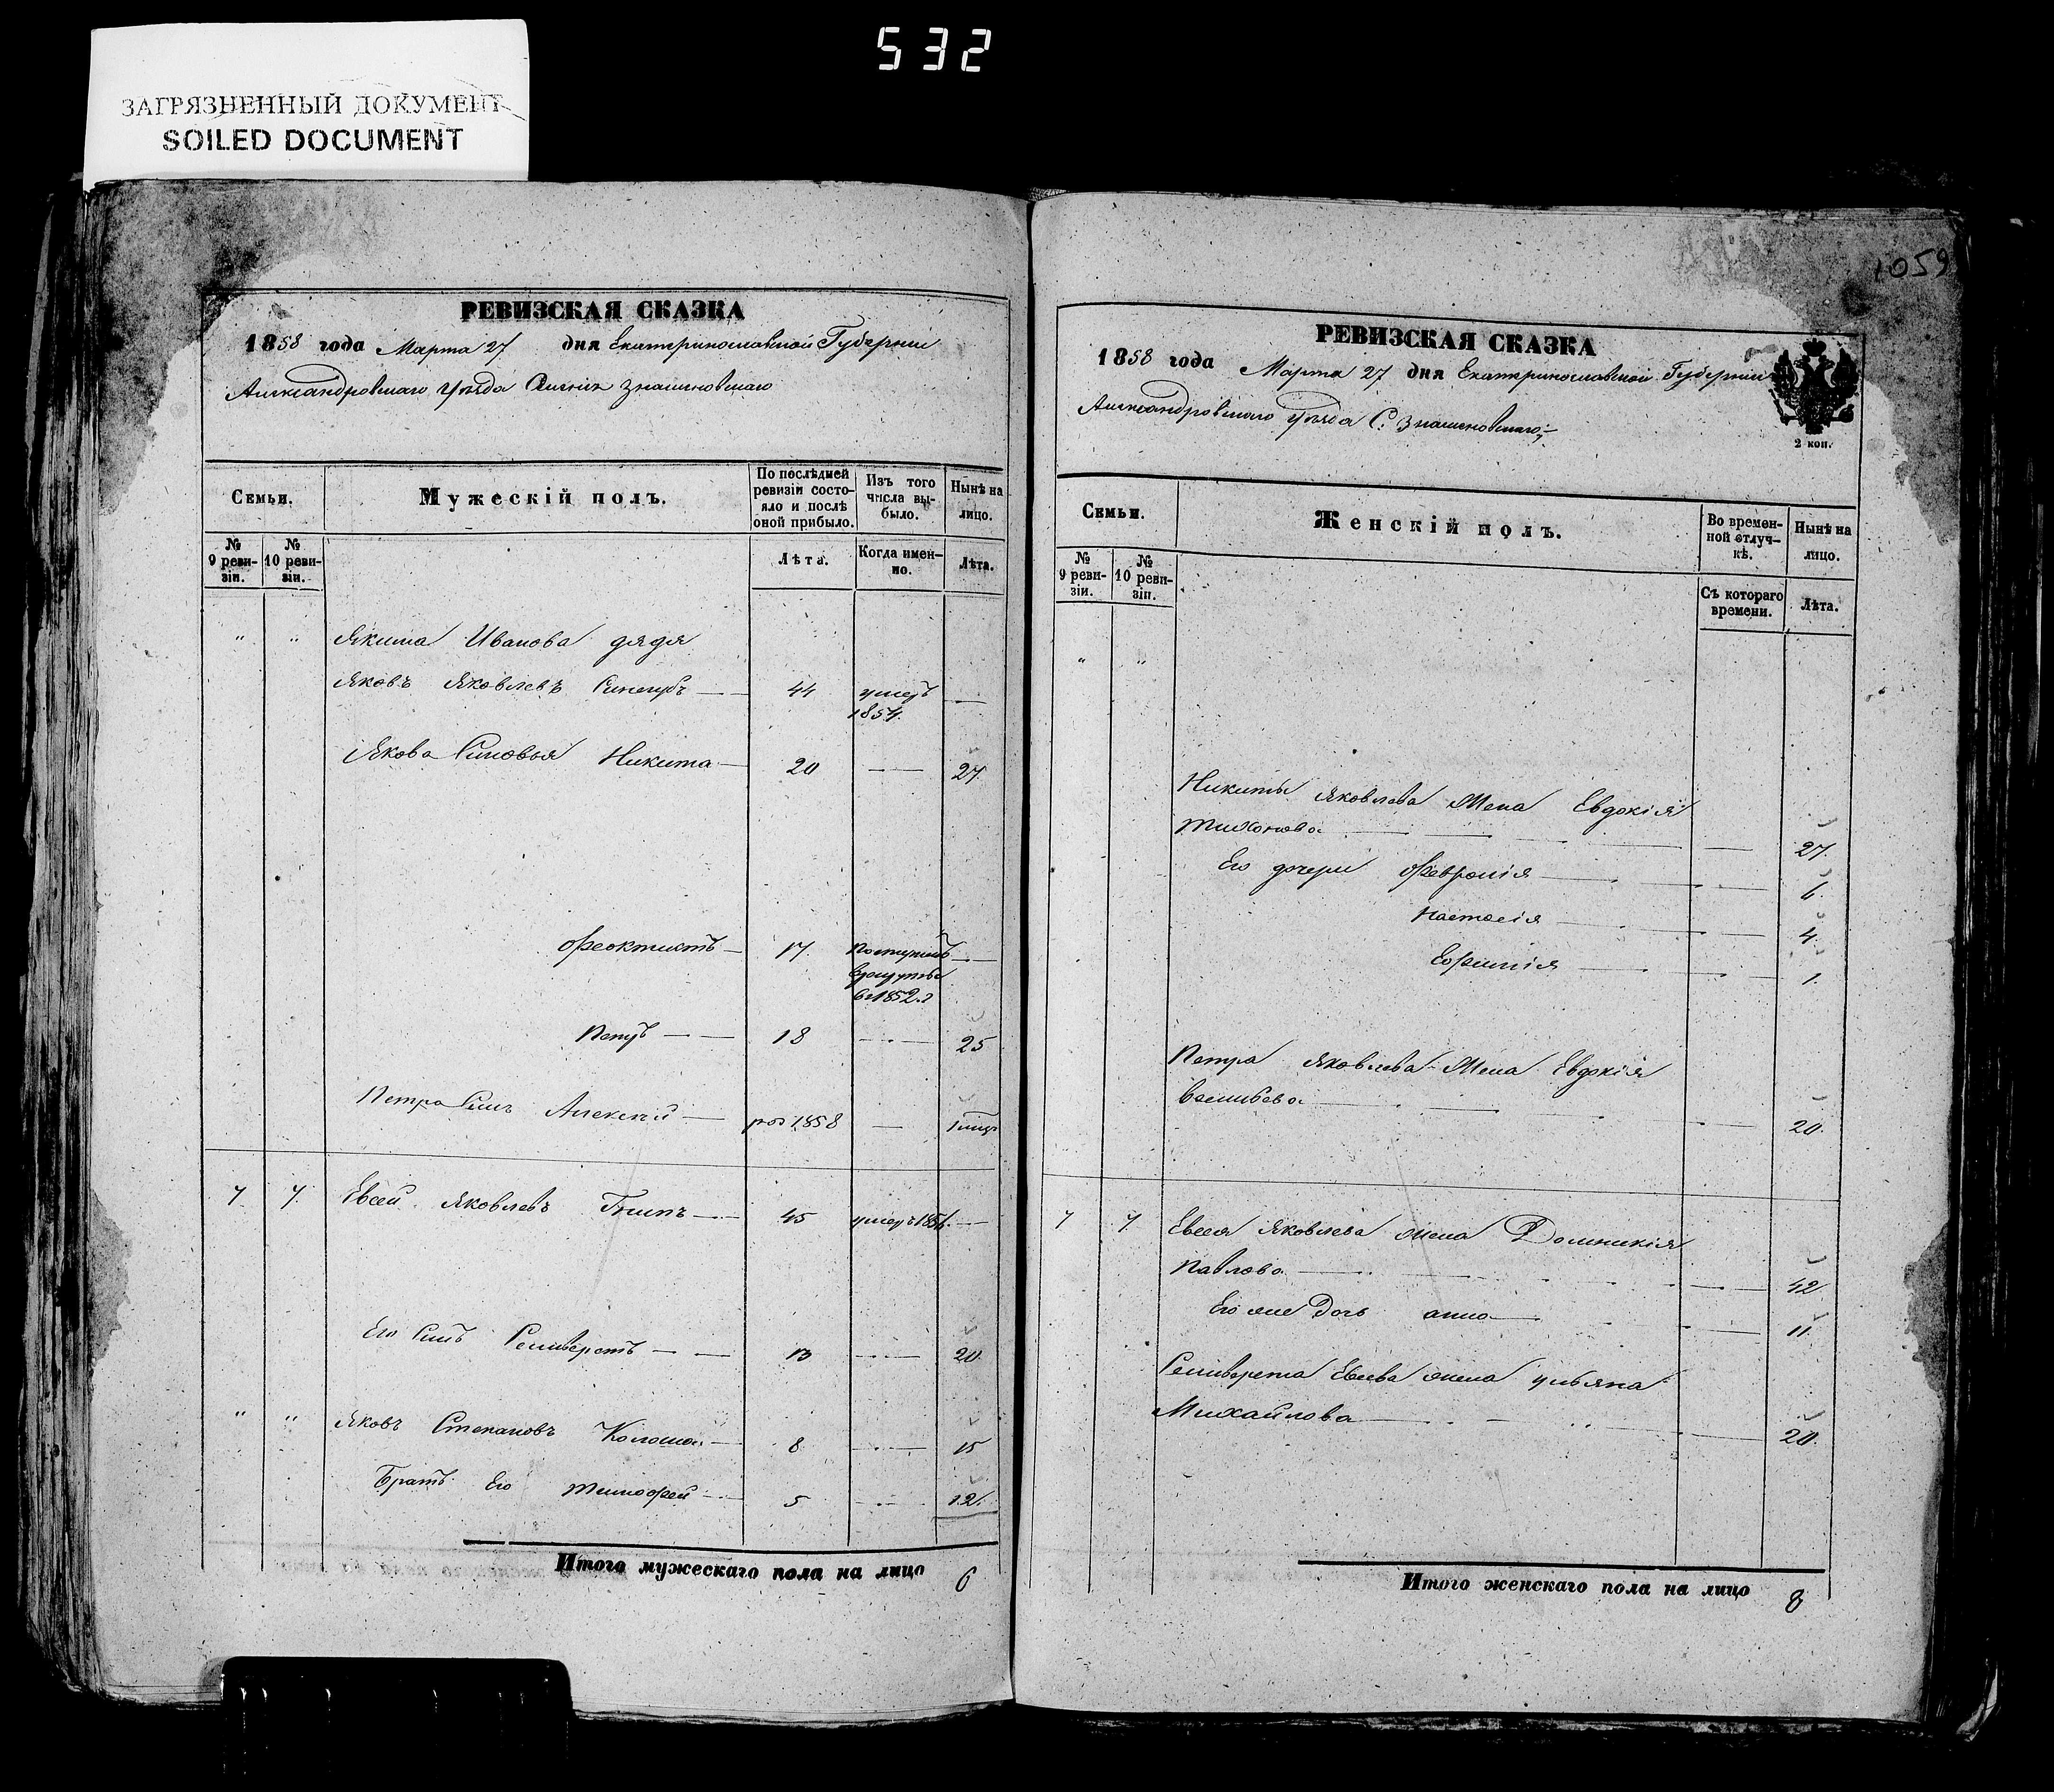 532
ЗАГРЯЗНЕННЫЙ ДОКУМЕНТ
SOILED DOCUMENT
РЕВИЗСКАЯ СКАЗКА
1858 года Марта 27 дня Екатеринославской Губернии
Александровскаго Уѣзда Знаменовскаго
Семьи.
Мужескій полъ.
По послѣдней ревизіи состояло и послѣ оной прибыло.
Изъ того числа выбыло.
Нынѣ на лицо.
№ 9 ревизіи.
№ 10 ревизіи.
Лѣта.
Когда именно.
Лѣта.
" " Якима Иванова дядя
Яковъ Яковлевъ Синегубъ 44 умеръ 1854.
Якова Сыновья Никита 20 27.
Феоктистъ 17. поступилъ в 1852 г
Петръ 18 25
Петра Сынъ Алексѣй род 1858 1 мѣц
7 7. Евсей Яковлевъ 45 умеръ 185
Его Сынъ Селиверстъ 13 20.
" " Яковъ Степановъ 8 15
Братъ Его Тимофей 5 12.
Итого мужескаго пола на лицо 6
1059
РЕВИЗСКАЯ СКАЗКА
1858 года Марта 27 дня Екатеринославской Губернии
Александровскаго Уѣзда С. Знаменовскаго
2 коп.
Семьи.
Женскій полъ.
Во временной отлучкѣ.
Нынѣ на лицо.
№ 9 ревизіи.
№ 10 ревизіи.
Съ котораго времени.
Лѣта.
" "
Никиты Яковлева Жена Евдокія
Тихонова 27.
Его дочери Февронія 6.
Настасія 4.
Ефимія 1.
Петра Яковлева Жена Евдокія
Васильева 20.
7 7 Евсея Яковлева жена Домникія
Павлова 42
Его же Дочь анна 11.
Селиверста Евсева жена Ульяна
Михайлова 20.
Итого женскаго пола на лицо 8